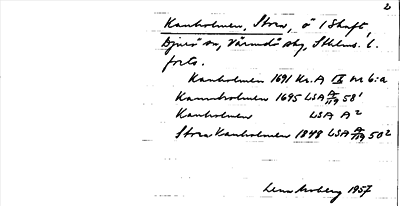 2
Kanholmen, Stora, ö i Skaft,
Djurö sn, Värmdö skg, Sthlms l.
forts.
Kanholmen 1691 Kr.A IX nr 6:a
Kannholmen 1695 LSA A/119 58¹
Kanholmen LSA A²
Stora Kanholmen 1848 LSA A/119 50²
1957